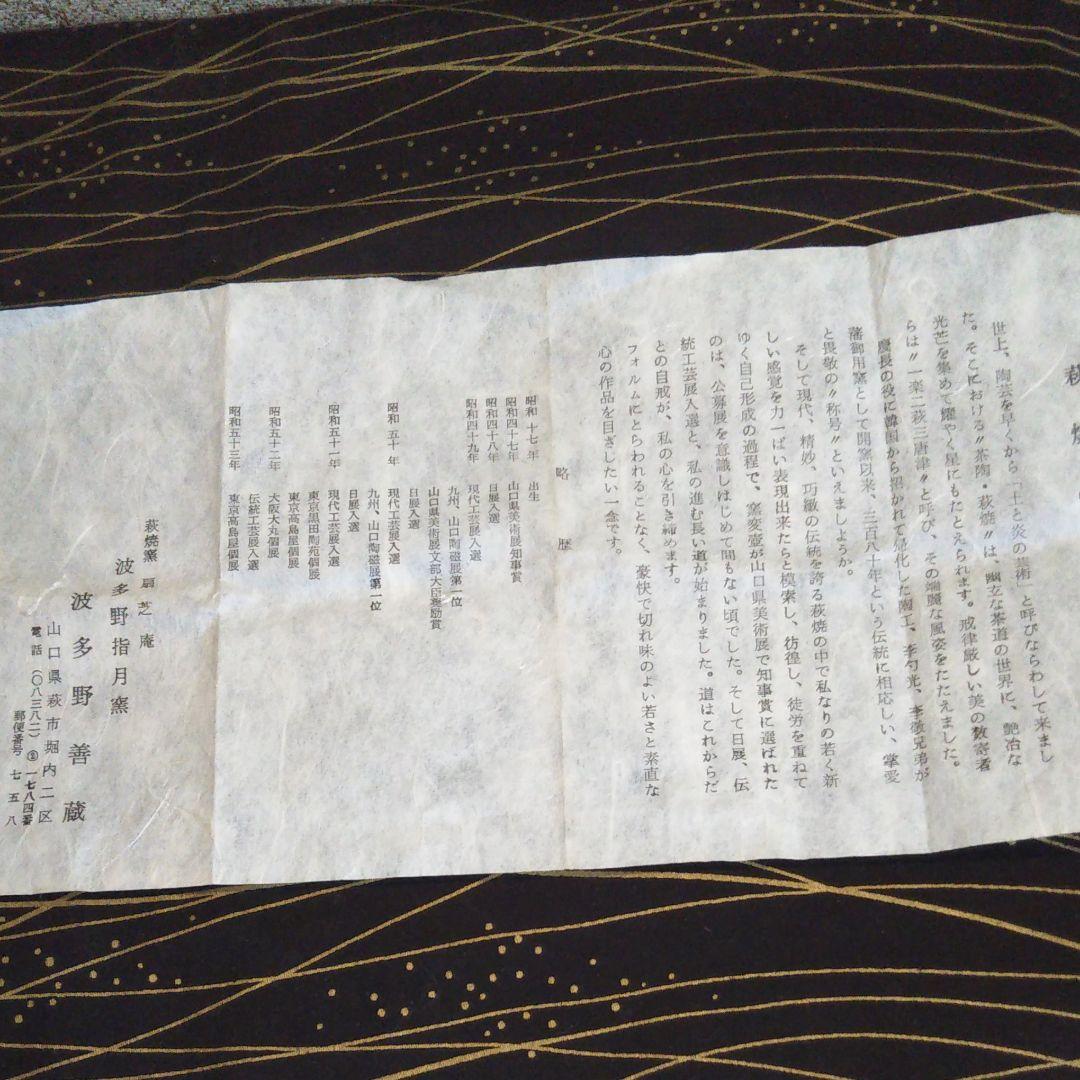 萩焼
世上、陶芸を早くから「土と炎の芸術」と呼びならわして来まし
た。そこにおける〃茶陶・萩焼〃は、幽玄な茶道の世界に、艶冶な
光芒を集めて耀やく星にもたとえられます。戒律厳しい美の数寄者
らは〃一楽二萩三唐津〃と呼び、その端麗な風姿をたたえました。
慶長の役に韓国から招かれて帰化した陶工、李勺光、李敬兄弟が
藩御用窯として開窯以来、三百八十年という伝統に相応しい、掌愛
と畏敬の〃称号〃といえましようか。
そして現代、精妙、巧緻の伝統を誇る萩焼の中で私なりの若く新
しい感覚を力一ぱい表現出来たらと模索し、彷徨し、徒労を重ねて
ゆく自己形成の過程で、窯変壺が山口県美術展で知事賞に選ばれた
のは、公募展を意識しはじめて間もない頃でした。そして日展、伝
統工芸展入選と、私の進む長い道が始まりました。道はこれからだ
との自戒が、私の心を引き締めます。
フォルムにとらわれることなく、豪快で切れ味のよい若さと素直な
心の作品を目ざしたい一念です。
略歴
昭和十七年 出生
昭和四十七年 山口県美術展知事賞
昭和四十八年 日展入選
昭和四十九年 現代工芸展入選
九州、山口陶磁展第一位
山口県美術展文部大臣奨励賞
日展入選
昭和五十年 現代工芸展入選
九州、山口陶磁展第一位
日展入選
昭和五十一年 現代工芸展入選
東京黒田陶苑個展
東京高島屋個展
昭和五十二年 大阪大丸個展
伝統工芸展入選
昭和五十三年 東京高島屋個展
萩焼窯 扇芝庵
波多野指月窯
波多野善蔵
山口県萩市堀内二区
電話(〇八三八二)②一七八四番
郵便番号 七五八